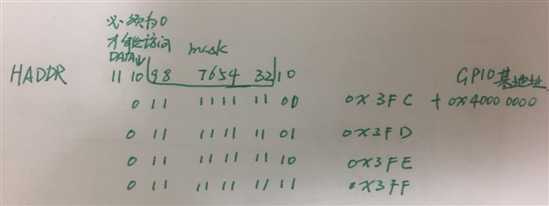 必须为0
才能访问
DATA↓ mask
HADDR 11 10 98 7654 32 10 GPIO基地址
0 11 1111 11 00 0X3FC + 0X4000 0000
0 11 1111 11 01 0X3FD
0 11 1111 11 10 0X3FE
0 11 1111 11 11 0X3FF